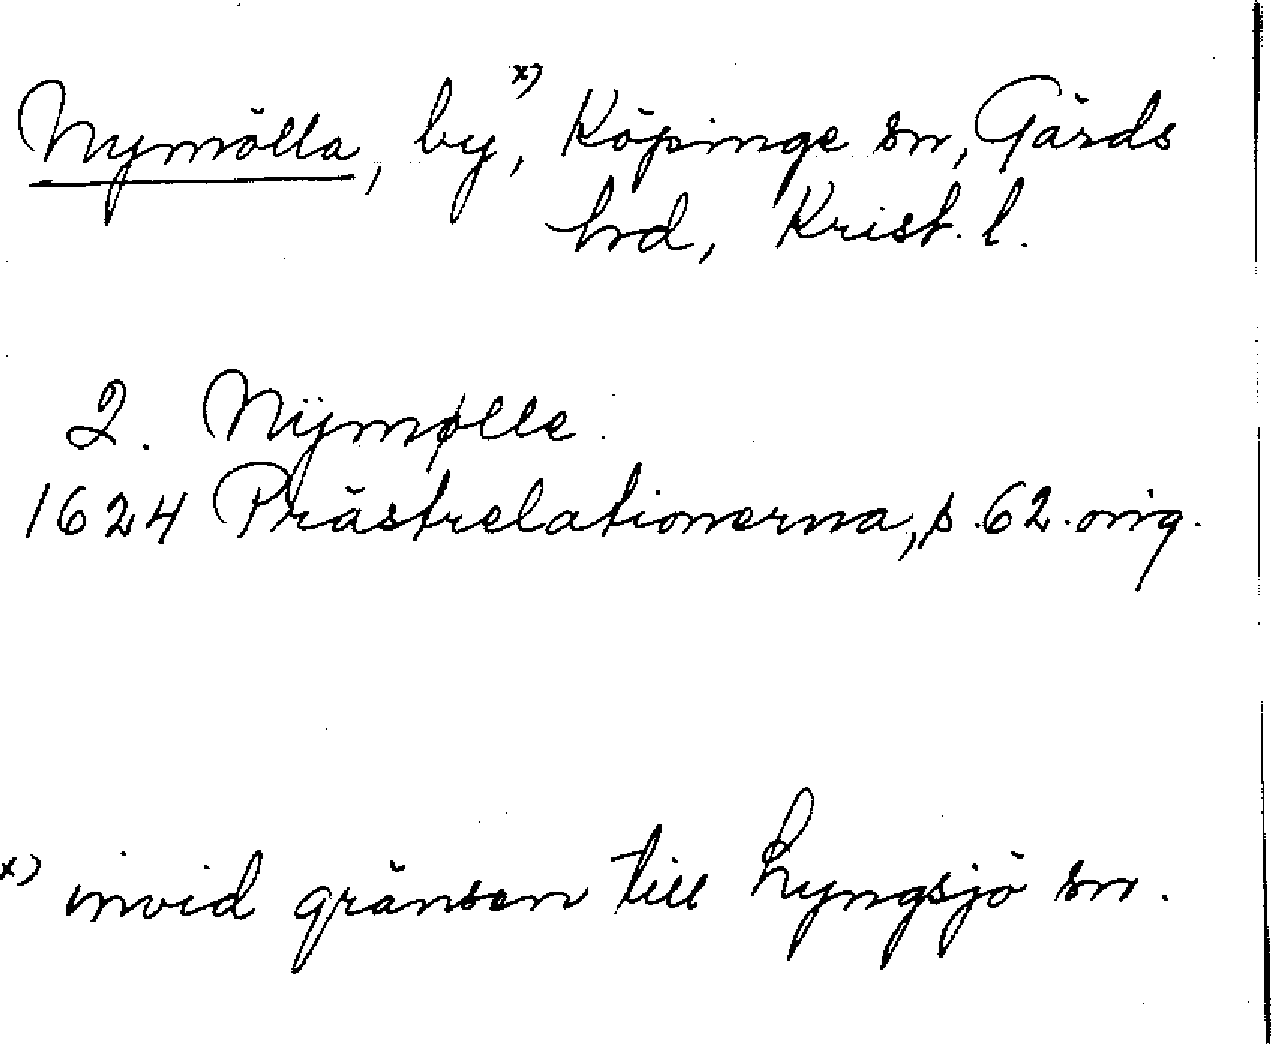 Nymölla, by,ˣ⁾ Köpinge sn, Gärds
hrd, Krist. l.
2. Nÿmølle
1624 Prästrelationerna, s. 62. orig.
ˣ⁾ invid gränsen till Lyngsjö sn.